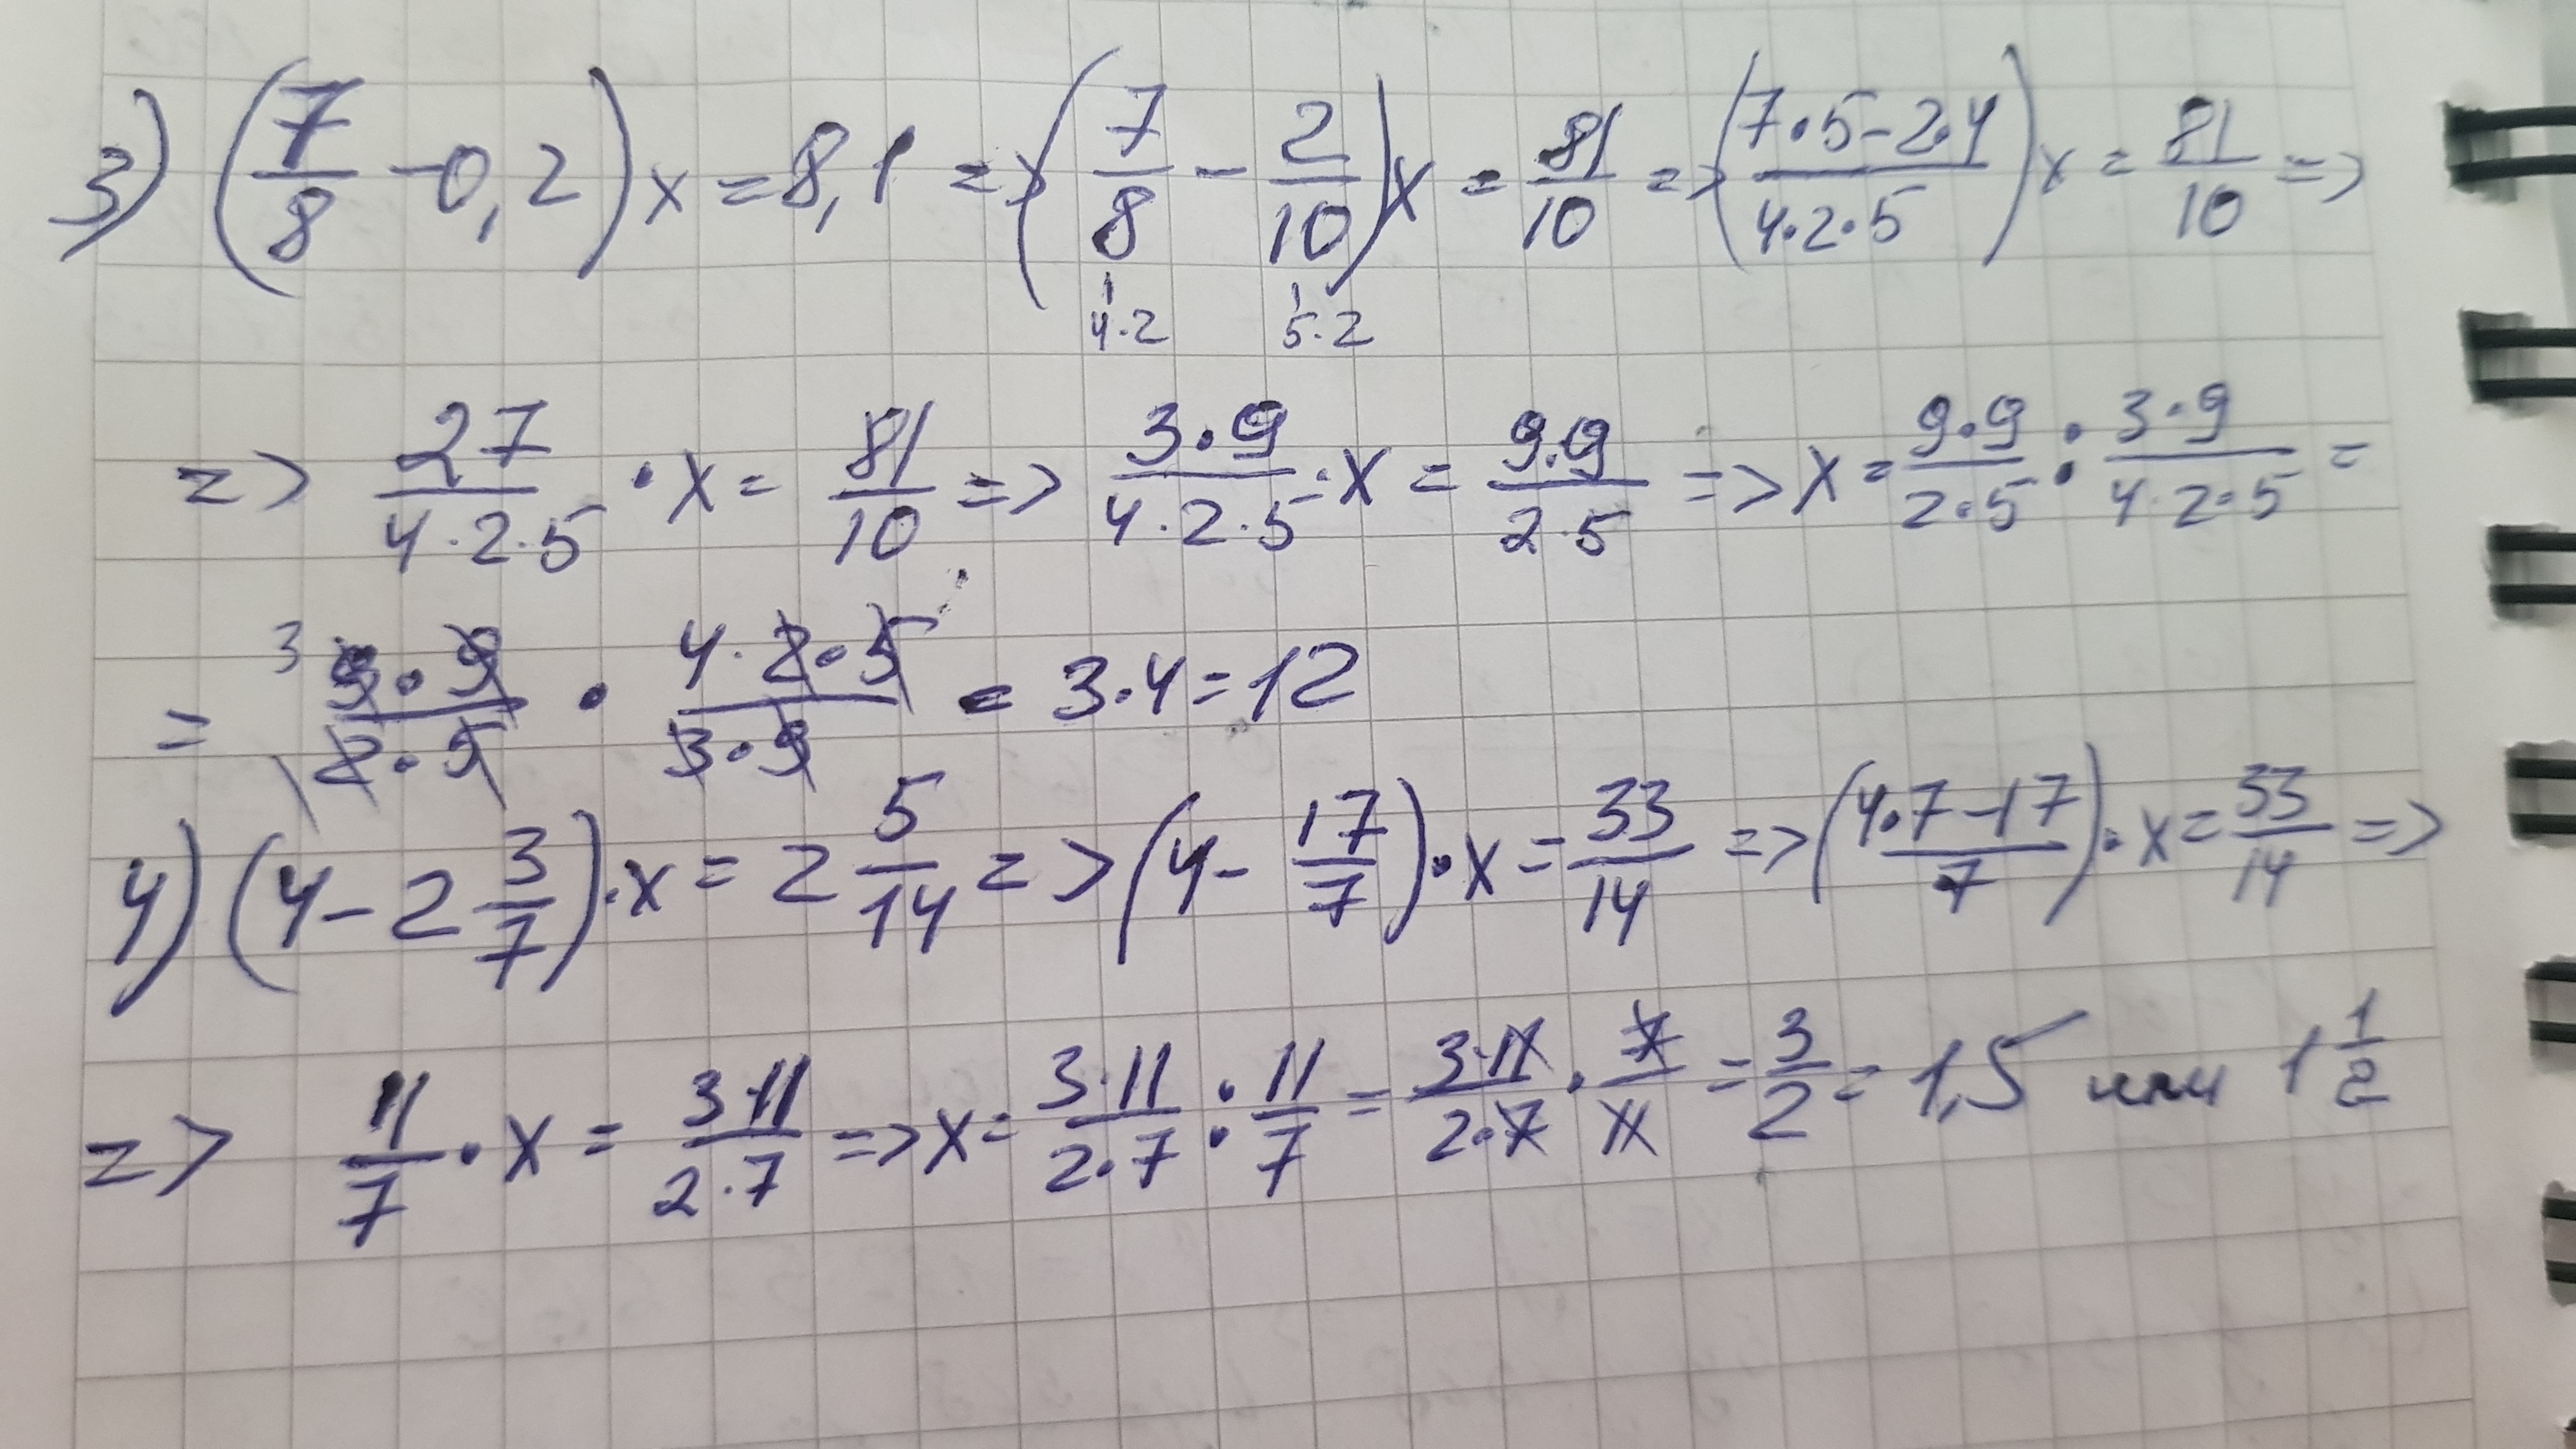 3) (7/8 - 0,2) x = 8,1 => (7/8 - 2/10) x = 81/10 => ((7·5-2·4)/(4·2·5)) x = 81/10 =>
4·2 5·2
=> 27/(4·2·5) · x = 81/10 => (3·9)/(4·2·5) · x = (9·9)/(2·5) => x = (9·9)/(2·5) : (3·9)/(4·2·5) =
= 3 (9·9)/(2·5) · (4·2·5)/(3·9) = 3·4 = 12
4) (4 - 2 3/7) · x = 2 5/14 => (4 - 17/7) · x = 33/14 => ((4·7-17)/7) · x = 33/14 =>
=> 11/7 · x = (3·11)/(2·7) => x = (3·11)/(2·7) : 11/7 = (3·11)/(2·7) · 7/11 = 3/2 = 1,5 или 1 1/2